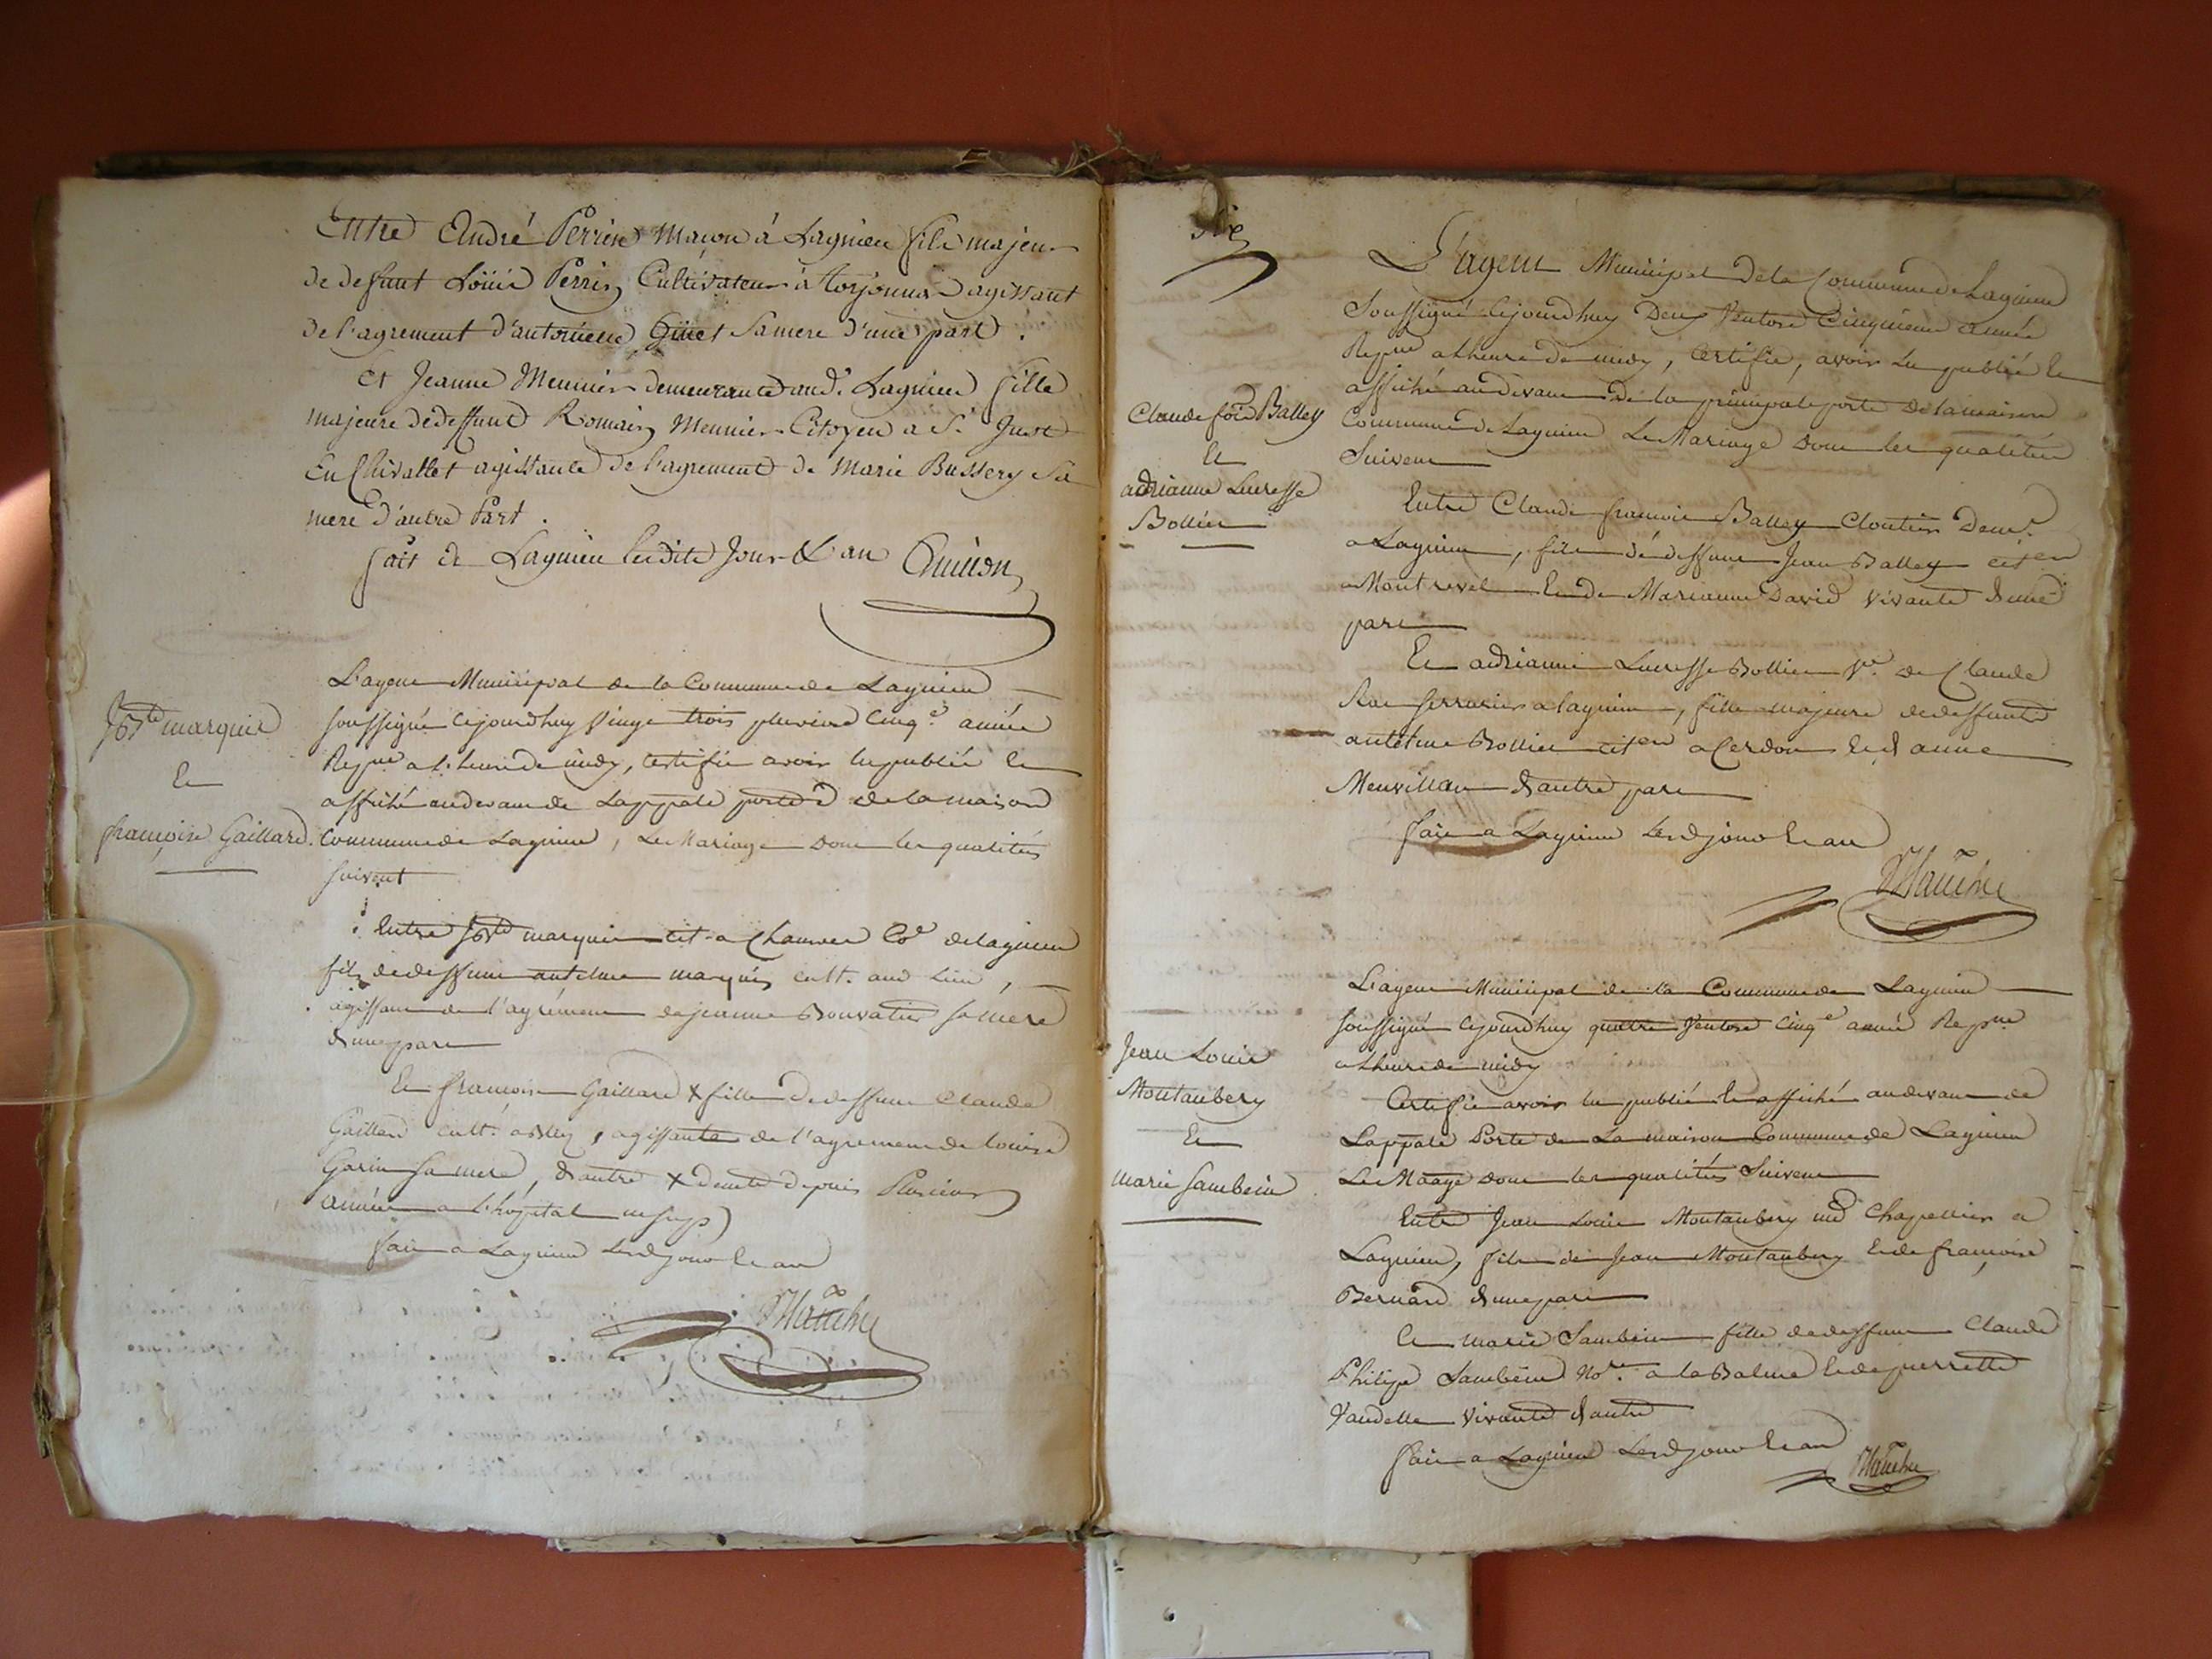 Entre André Perrin Maçon à Lagnieu fils majeur
de deffunt Loüis Perrin Cultivateur à Torjonna agissant
de l'agrement d'antoinette Guiet sa mere d'une part.
Et Jeanne Meunier demeurante aud. Lagnieu fille
majeure de deffunt Romain Meunier Citoyen a St. Just
En Chivallet agissante de l'agrement de Marie Bussery sa
mere d'autre Part.
fait à Lagnieu lesdits Jour & an
J Bte marquis
Et
françoise Gaillard
L'agent Municipal de la Commune de Lagnieu
soussigné cejourdhuy vingt trois pluviose cinqe. année
Repne a l'heure de midy, certifie avoir lu publié et
affiché audevant de la ppale porte de la maison
Commune de Lagnieu, Le Mariage dont les qualités
suivent
Entre J Bte marquis cit. a Coe delagnieu
fils de deffunt antelme marquis cult. aud lieu,
agissant de l'agrément de jeanne Bouvatier sa mere
d'une part
Et françoise Gaillard + fille de deffunt Claude
Gaillard cult. a Bley, agissante de l'agrement de louise
Garin sa mere, d'autre + demte depuis Plusieurs
années a l'hôpital
fait a Lagnieu lesd jour et an
Claude fois Balley
Et
adrianne Lucresse
Bollier
L'agent Municipal de la Commune de Lagnieu
Soussigné Cejourdhuy Deux Ventose Cinquieme année
Repne a lheure de midy, Certifie, avoir lu publié et
affiché audevant de la principale porte de la maison
Commune de Lagnieu Le Mariage dont les qualités
Suivent
Entre Claude françois Balley Cloutier Demt.
a Lagnieu, fils de deffunt Jean Balley citen
a Montrevel et de Marianne David vivante d'une
part
Et adrianne Lucresse Bollier Ve. de Claude
ferrasier a lagnieu, fille majeure de deffunt
antelme Bollier citen a Cerdon et d'anne
Meuvillan d'autre part
fait a Lagnieu lesd jour et an
Jean Louis
Montaubery
Et
marie Sambein
L'agent Municipal de la Commune de Lagnieu
soussigné cejourdhuy quatre Ventose cinqe année Repne
a lheure de midy
Certifie avoir lu publié et affiché audevant de
La ppale Porte de La maison Commune de Lagnieu
Le Maage dont les qualités Suivent
Entre Jean Louis Montaubery md Chapellier a
Lagnieu, fils de Jean Montaubery et de françoise
Bernard d'une part
Et marie Sambein fille de deffunt Claude
Philipe Sambein Nore. a la Balme et de pierrette
Vaudelle vivante d'autre
fait a Lagnieu Lesd jour et an